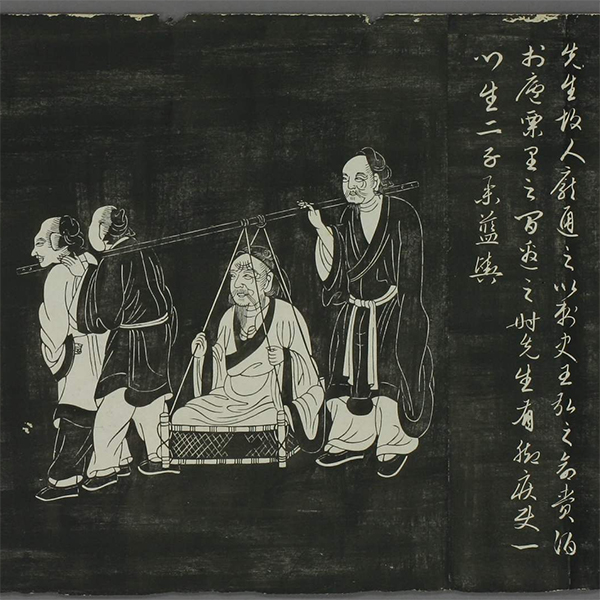 先生故人龐通之以刺史王弘之命賫酒
於廬栗里之間邀之時先生有腳疾使一
門生二子舁藍輿